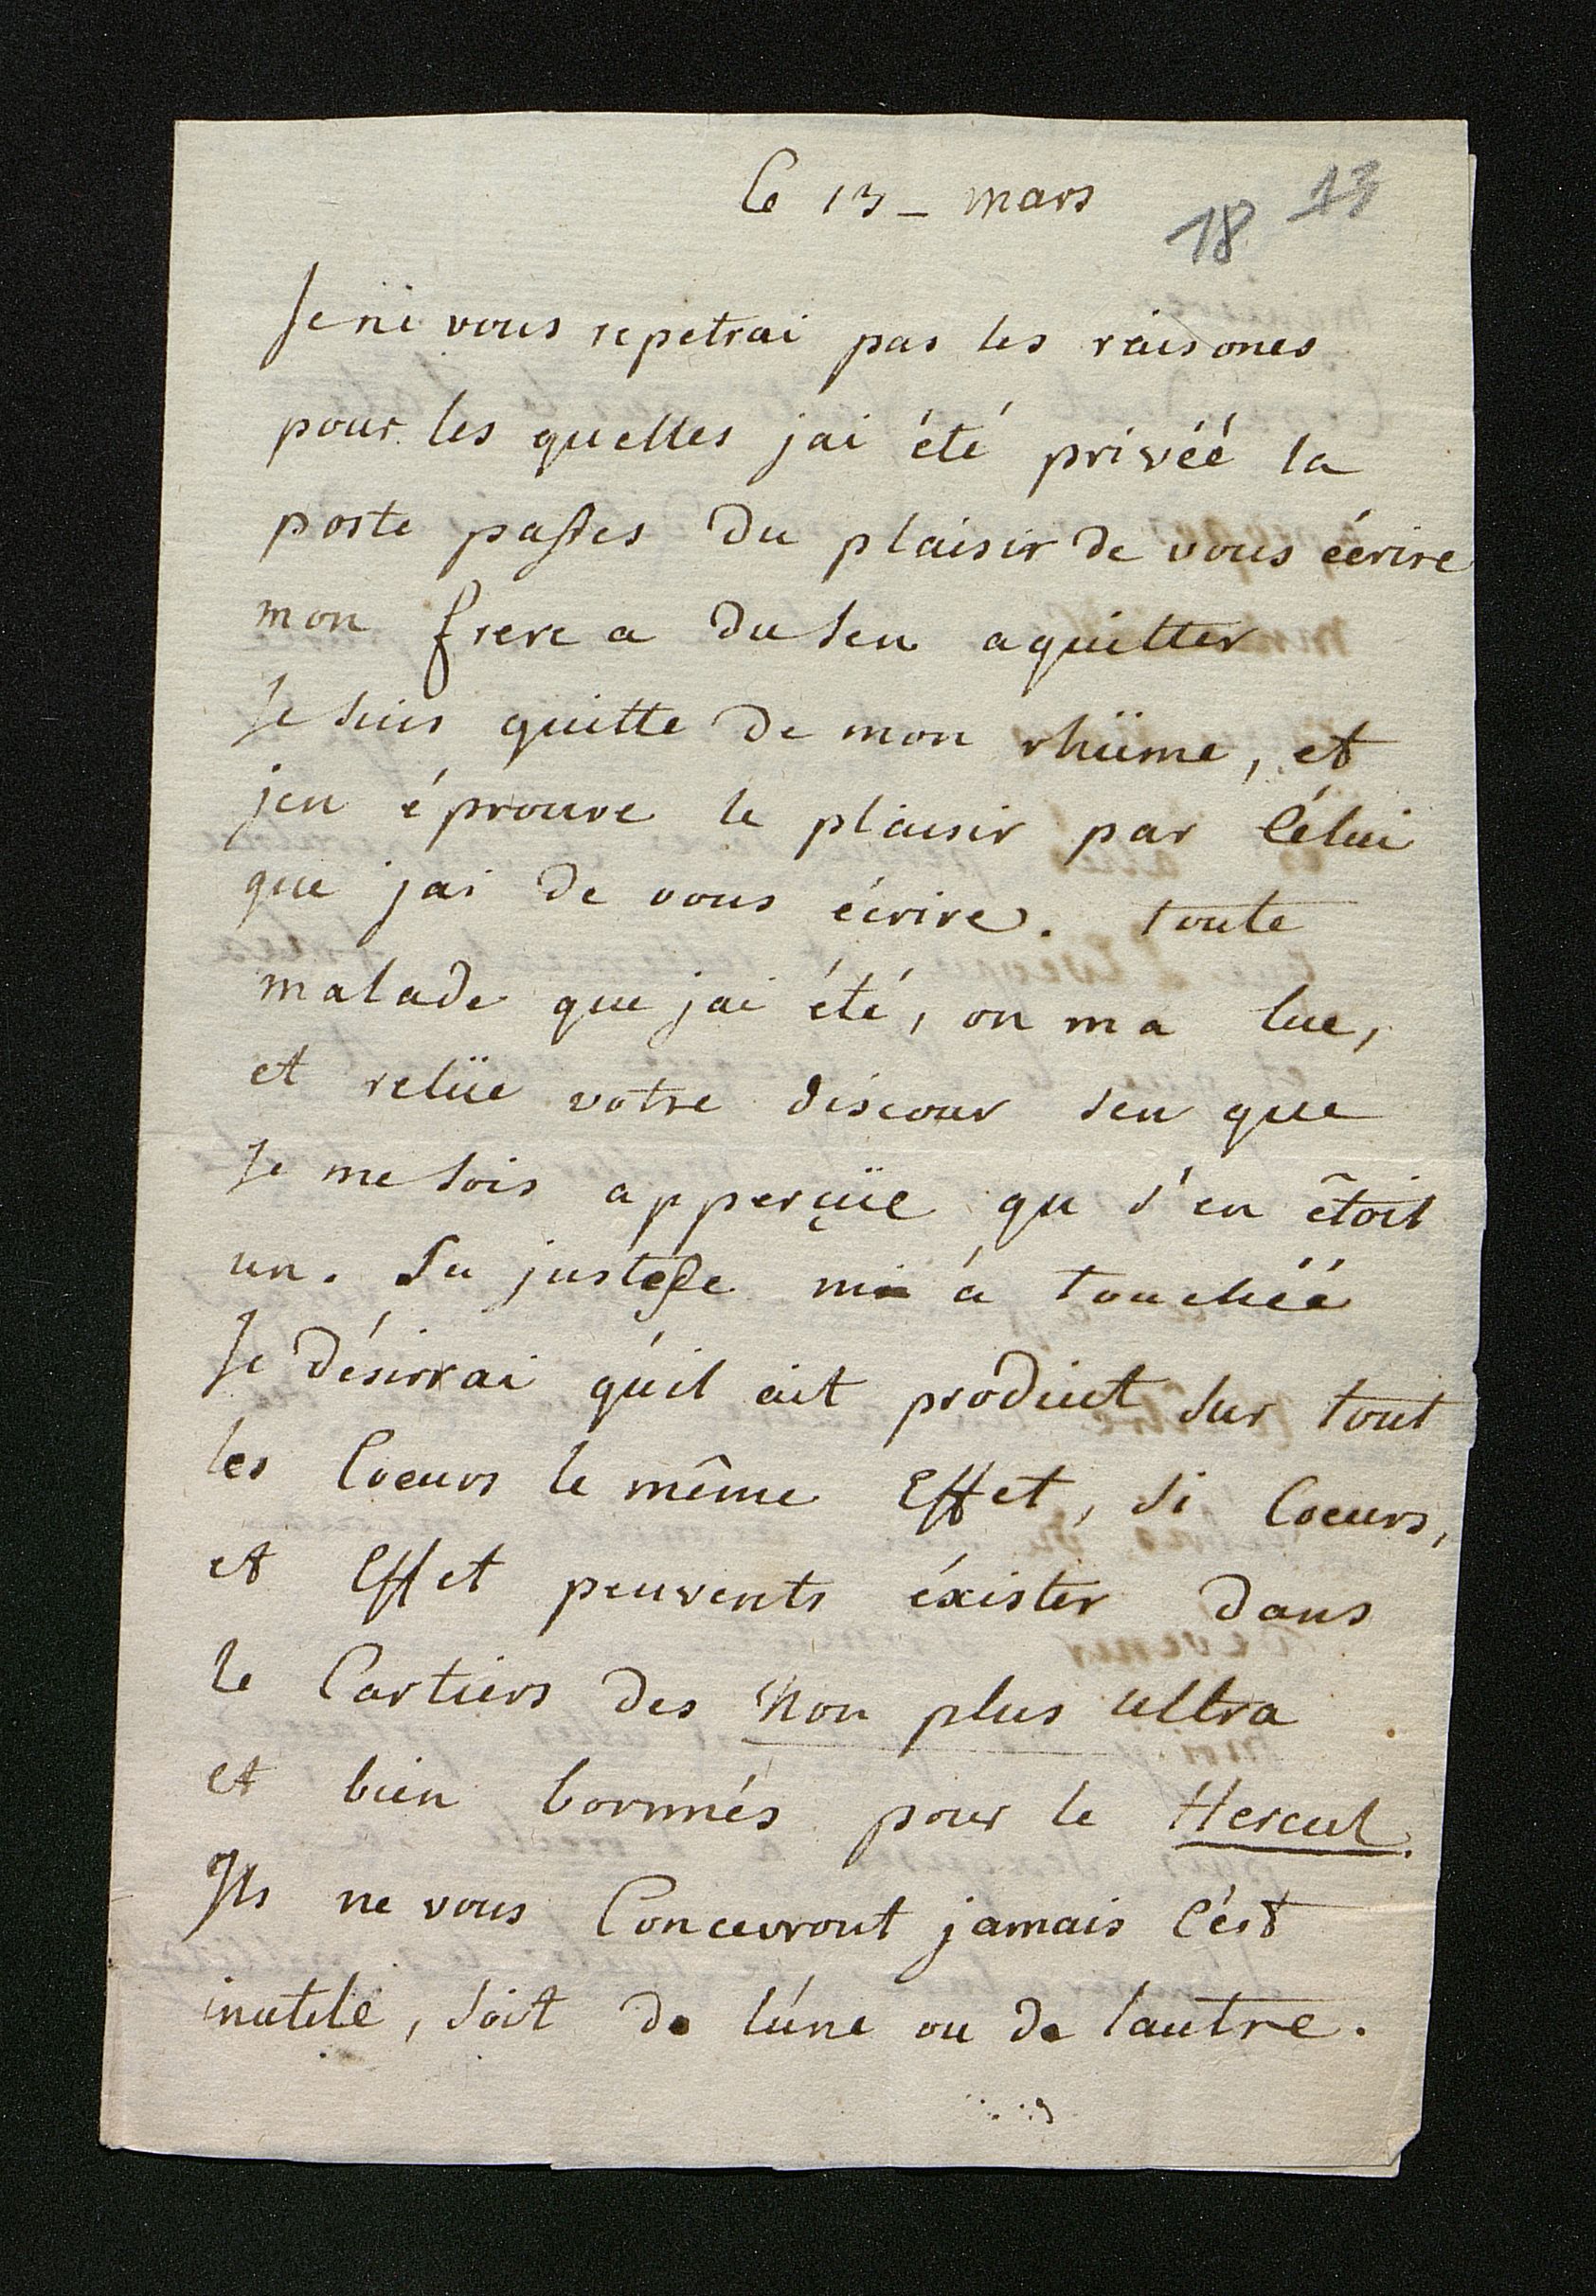 Ce 13 - mars
18 13
Je ni vous repetrai pas les raisones
pour les quelles jai été privéé la
poste passes du plaisir de vous écrire
mon frere a du sen aquitter
Je suis quitte de mon rhüme, et
jen éprouve le plaisir par Célui
que jai de vous écrire. toute
malade que jai été, on ma lue,
et relüe votre discour sen que
Je me sois apperçüe qu s'en étoit
un. Sa justesse m a touchéé
Je désirrai qu'il ait produit sur tout
les Coeurs le même Effet, si Coeurs,
et Effet peuvents éxister dans
le Cartiers des Non plus ultra
et bien bornnés pour le Hercul.
Ils ne vous Concevront jamais C'est
inutile, soit de lúne ou de lautre.